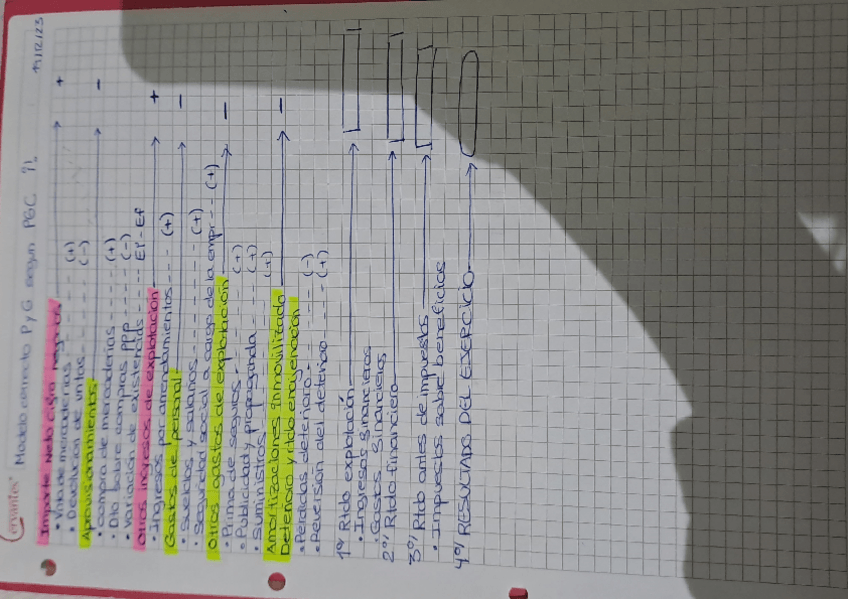 Cervantes" Modelo correcto PyG según PGC 19/12/23
Importe Neto cifra negocios → +
• Vta de mercaderías ---- (+)
• Devolución de vntas ---- (-)
Aprovisionamientos → -
• compra de mercaderías ---- (+)
• Dto sobre compras PPP ---- (-)
• variación de existencias ---- EI-EF
Otros ingresos de explotación → +
• Ingresos por arrendamientos ---- (+)
Gastos de personal → -
• sueldos y salarios ---- (+)
• seguridad social a cargo de la empr -- (+)
Otros gastos de explotación → -
• Prima de seguros ---- (+)
• Publicidad y propaganda ---- (+)
• suministros ---- (+)
Amortizaciones inmovilizado → -
Deterioro y rtdo enajenación
• Pérdidas deterioro ---- (-)
• Reversión del deterioro ---- (+)
1º/ Rtdo explotación →
• Ingresos financieros
• Gastos financieros
2º/ Rtdo financiero →
3º/ Rtdo antes de impuestos →
• Impuestos sobre beneficios
4º/ RESULTADO DEL EXERCICIO →